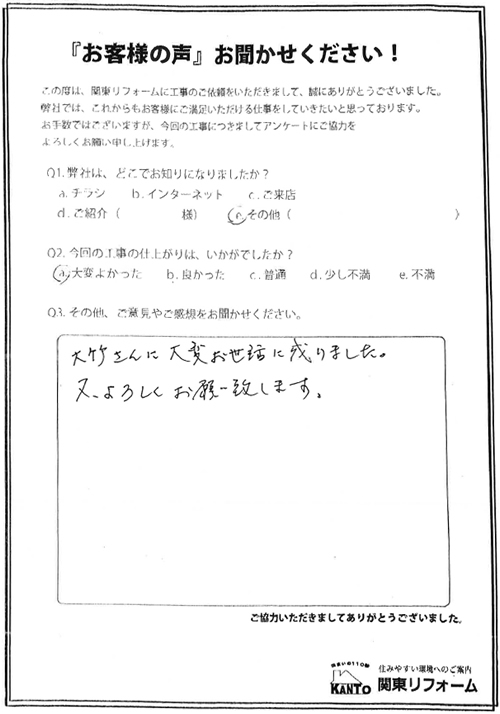 『お客様の声』お聞かせください！
この度は、関東リフォームに工事のご依頼をいただきまして、誠にありがとうございました。
弊社では、これからもお客様にご満足いただける仕事をしていきたいと思っております。
お手数ではございますが、今回の工事につきましてアンケートにご協力を
よろしくお願い申し上げます。
Q1. 弊社は、どこでお知りになりましたか？
a. チラシ b. インターネット c. ご来店
d. ご紹介（ 様） e. その他（ ）
Q2. 今回の工事の仕上がりは、いかがでしたか？
a. 大変よかった b. 良かった c. 普通 d. 少し不満 e. 不満
Q3. その他、ご意見やご感想をお聞かせください。
大竹さんに大変お世話に成りました。
又、よろしくお願い致します。
ご協力いただきましてありがとうございました。
住まいの110番
KANTO
住みやすい環境へのご案内
関東リフォーム